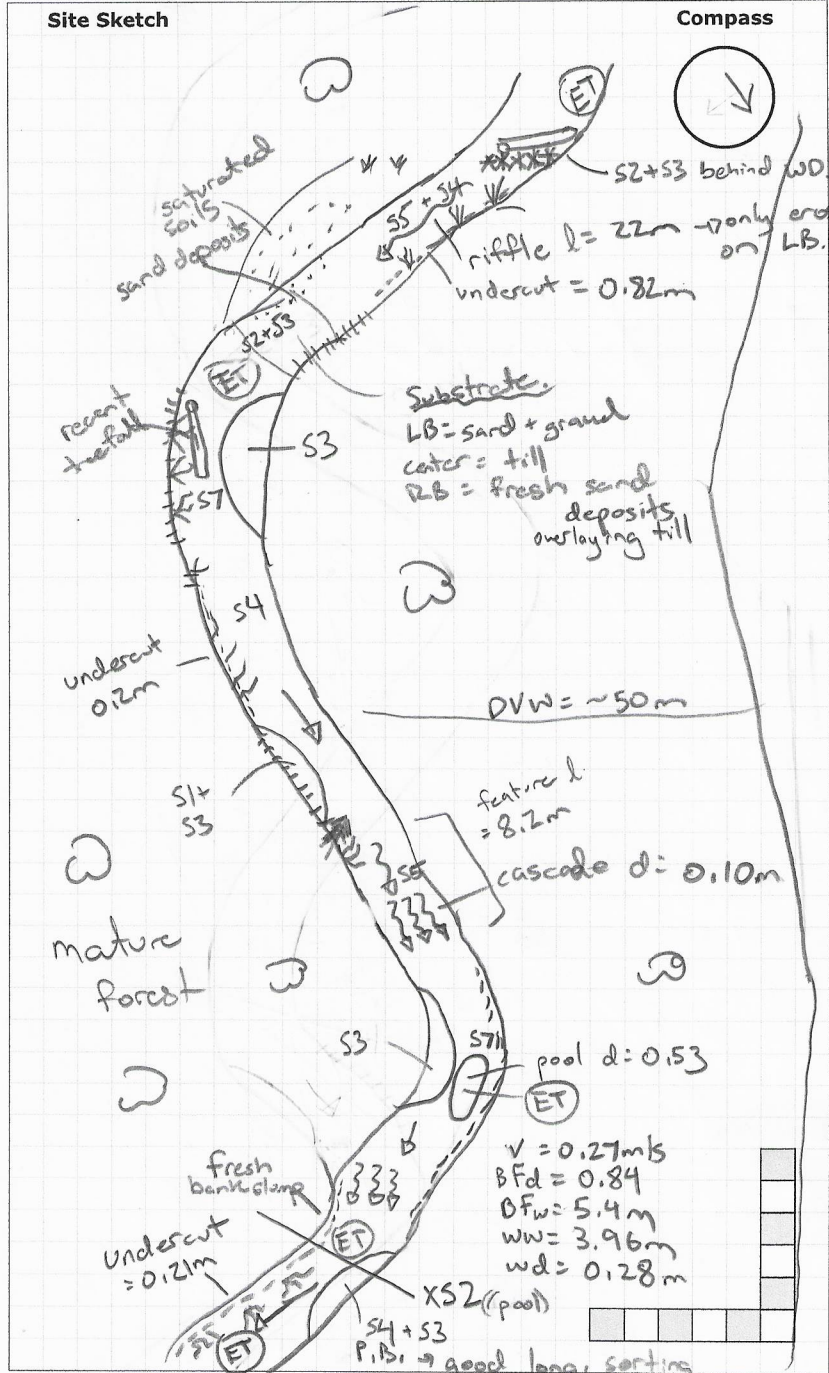 Site Sketch
Compass
ET
S2+S3 behind WD.
saturated
soils
sand deposits
S5 + S4
riffle l = 22m → only ero
on LB.
undercut = 0.82m
S2+S3
ET
recent
treefall
S3
S7
Substrate.
LB = sand + gravel
center = till
RB = fresh sand
deposits
overlaying till
S4
undercut
0.2m
DVW = ~50m
S1+
S3
feature l
= 8.2m
S5
cascade d = 0.10m
mature
forest
S3
S7
pool d = 0.53
ET
V = 0.27m/s
BFd = 0.84
BFw = 5.4m
ww = 3.96m
wd = 0.28m
fresh
bank slump
ET
undercut
= 0.21m
XS2 (pool)
S4 + S3
P.B. → good long. sorting
ET